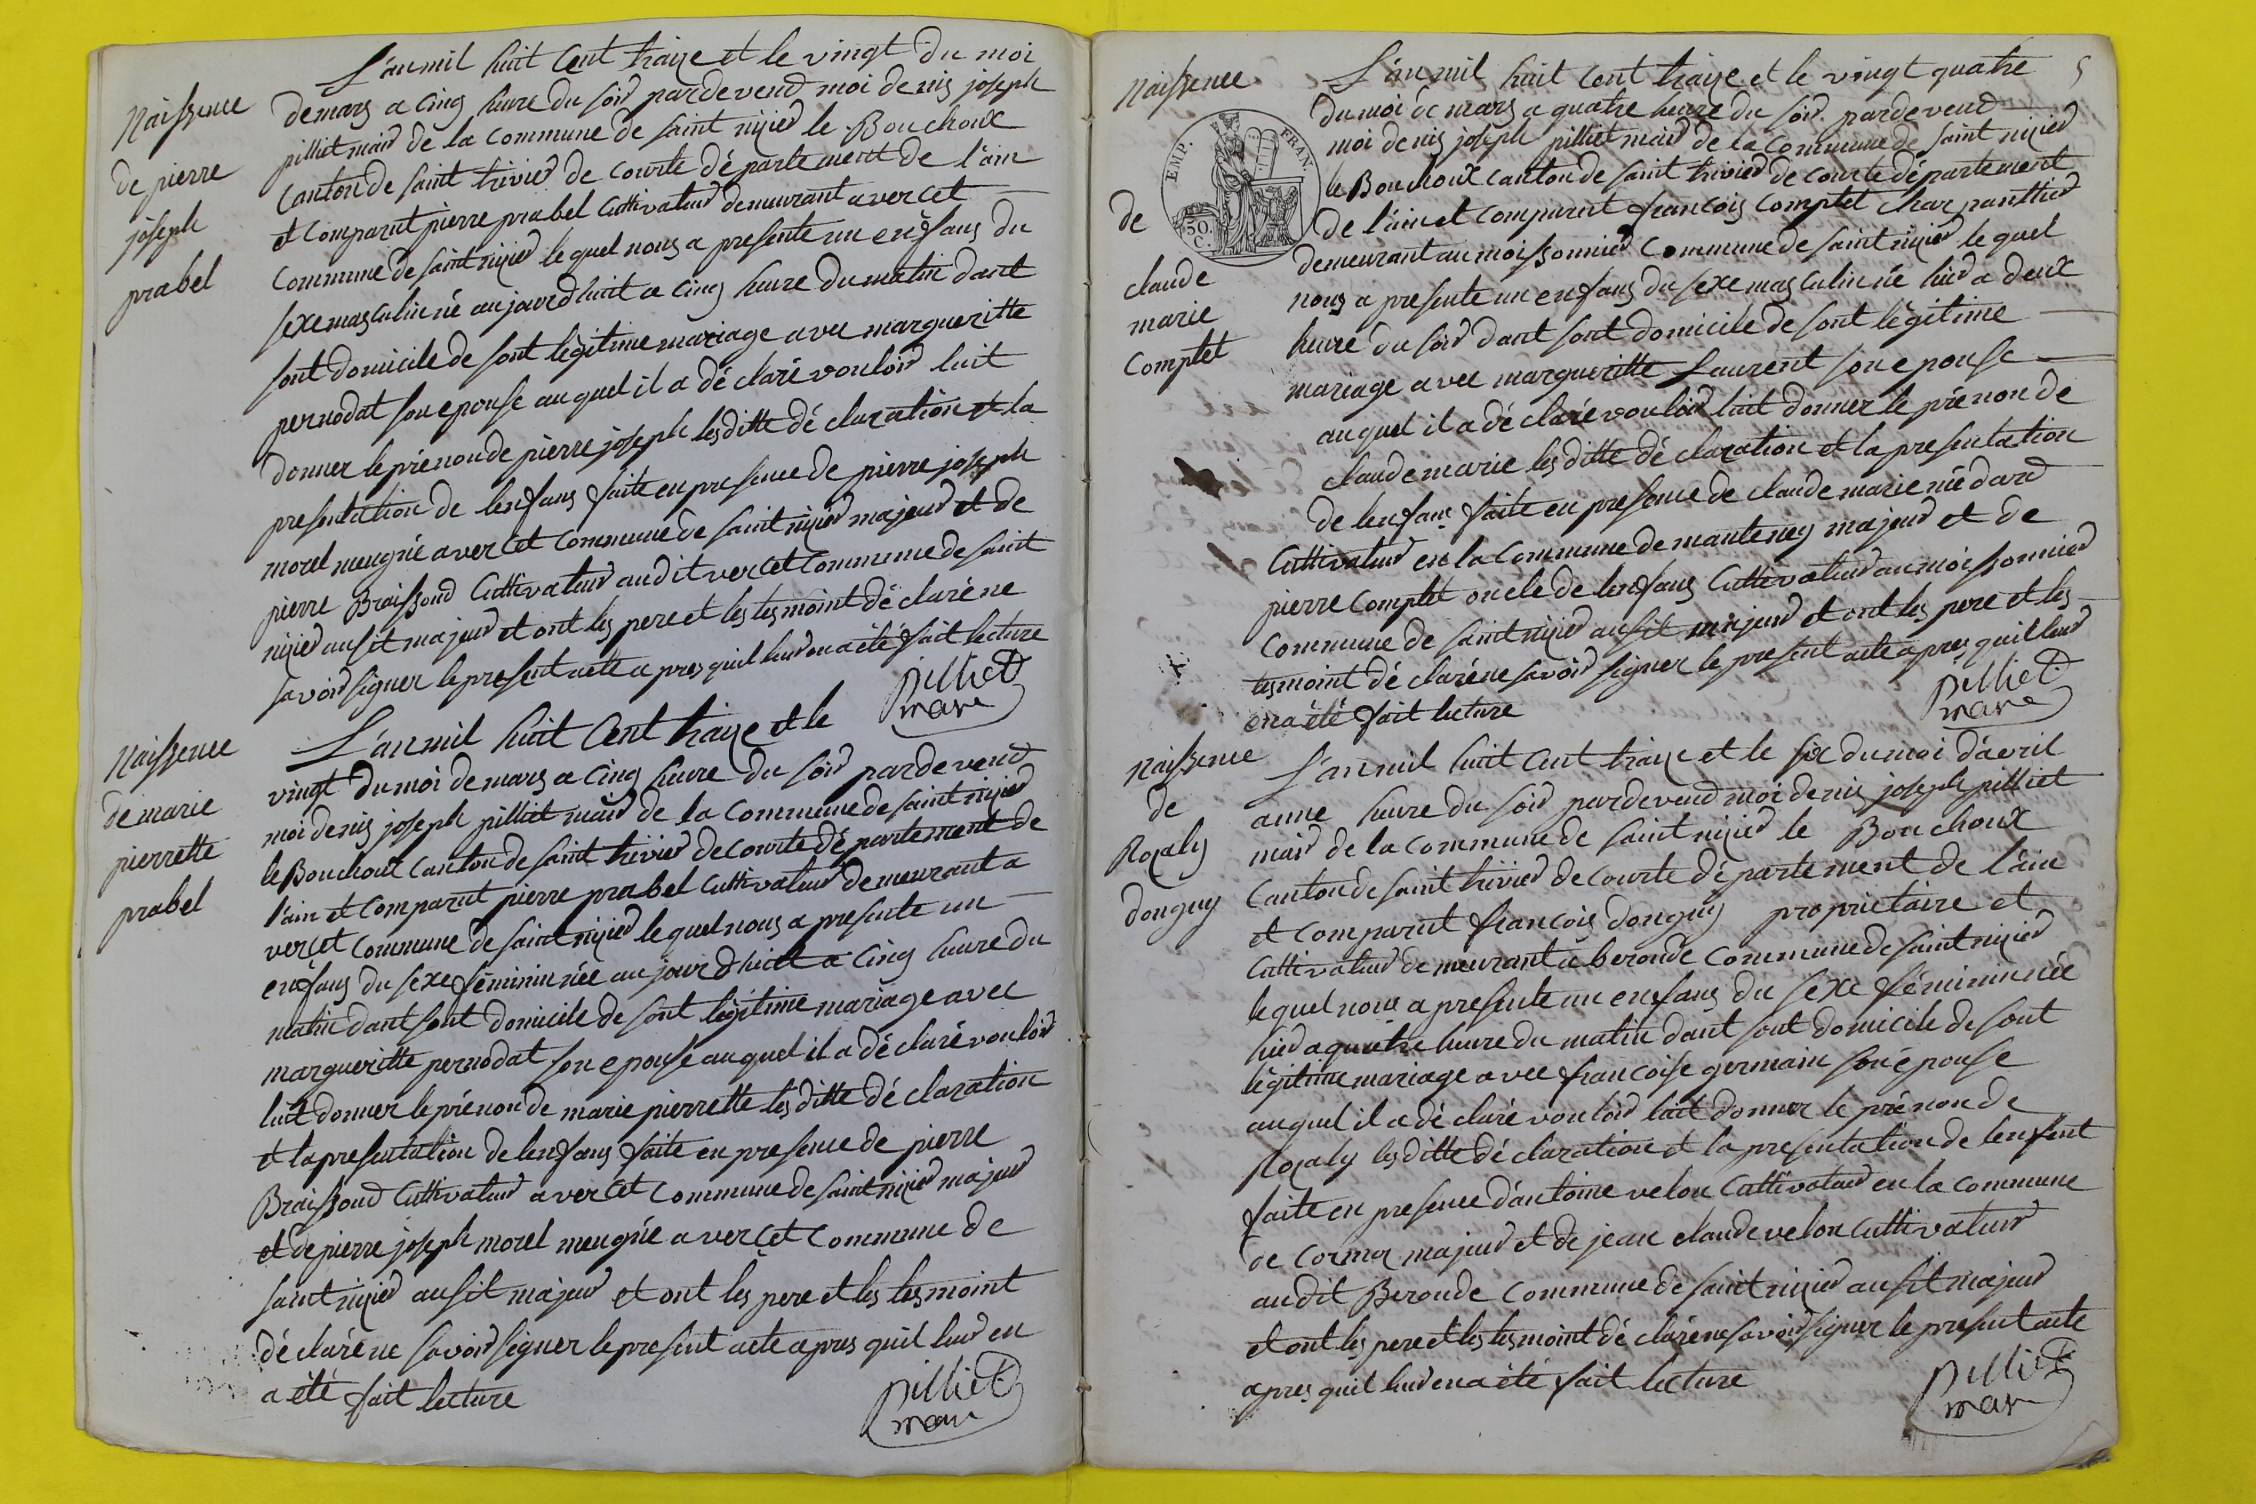 Naissence
de pierre
joseph
prabel
L'an mil huit cent traize et le vingt du moi
de mars a cinq heure du soir pardevend moi denis joseph
pilliet mair de la commune de saint nizier le Bouchoux
canton de saint trivier de courte département de l'ain
et comparut pierre prabel cultivateur demeurant a vercet
commune de saint nizier le quel nous a presente un enfans du
sexe masculin né aujourdhuit a cinq heure du matin dant
sont domicile de sont légitime mariage avec margueritte
pernodat son epouse auquel il a déclaré vouloir luit
donner le prénon de pierre joseph lesditte déclaration et la
presentation de lenfans faite en presence de pierre joseph
morel meugnié a vercet commune de saint nizier majeur et de
pierre Braissoud cultivateur audit vercet commune de saint
nizier ausit majeur et ont les pere et les tesmoint déclaréne
savoir signer le present acte apres quil leur en a été fait lecture
pilliet
mare
Naissence
de marie
pierrette
prabel
L'an mil huit cent traize et le
vingt du moi de mars a cinq heure du soir pardevend
moi denis joseph pilliet mair de la commune de saint nizier
le Bouchout canton de saint trivier de courte département de
l'ain et comparut pierre prabel cultivateur demeurant a
vercet commune de saint nizier le quel nous a presente un
enfans du sexe féminin née aujourdhuit a cinq heure du
matin dant sont domicile de sont légitime mariage avec
margueritte pernodat son epouse auquel il a déclaré vouloir
luit donner le prénon de marie pierrette lesditte déclaration
et la presentation de lenfans faite en presence de pierre
Braissoud cultivateur a vercet commune de saint nizier majeur
et de pierre joseph morel meugnie a vercet commune de
saint nizier ausit majeur et ont les pere et les tesmoint
déclaréne savoir signer le present acte apres quil leur en
a été fait lecture
pilliet
mare
5
Naissence
de
claude
marie
complet
EMP. FRAN.
50.
C.
L'an mil huit cent traize et le vingt quatre
du moi de mars a quatre heure du soir pardevend
moi denis joseph pilliet mair de la commune de saint nizier
le Bouchoux canton de saint trivier de courte département
de l'ain et comparut francois complet charpanthier
demeurant au moissonnier commune de saint nizier le quel
nous a presente un enfans du sexe masculin né hier a deux
heure du soir dant sont domicile de sont légitime
mariage avec margueritte Laurent son epouse
auquel il a déclaré vouloir luit donner le prénon de
claude marie lesditte déclaration et la presentation
de lenfans faite en presence de claude marie médard
cultivateur en la commune de manteney majeur et de
pierre complet oncle de lenfans cultivateur au moissonnier
commune de saint nizier ausit majeur et ont les pere et les
tesmoint déclaréne savoir signer le present acte apres quil leur
en a été fait lecture
pilliet
mare
Naissence
de
Rozaly
donguy
L'an mil huit cent traize et le six du moi d'avril
a une heure du soir pardevend moi denis joseph pilliet
mair de la commune de saint nizier le Bouchoux
canton de saint trivier de courte département de l'ain
et comparut francois donguy propriétaire et
cultivateur demeurant a beronde commune de saint nizier
le quel nous a presente un enfans du sexe féminin née
hier a quatre heure du matin dant sont domicile de sont
légitime mariage avec francoise germain son épouse
auquel il a déclaré vouloir luit donner le prénon de
Rozaly lesditte déclaration et la presentation de lenfent
faite en presence d'antoine velon cultivateur en la commune
de cormoz majeur et de jean claude velon cultivateur
audit Beronde commune de saint nizier ausit majeur
et ont les pere et les tesmoint déclaréne savoir signer le present acte
apres quil leur en a été fait lecture
pilliet
mare